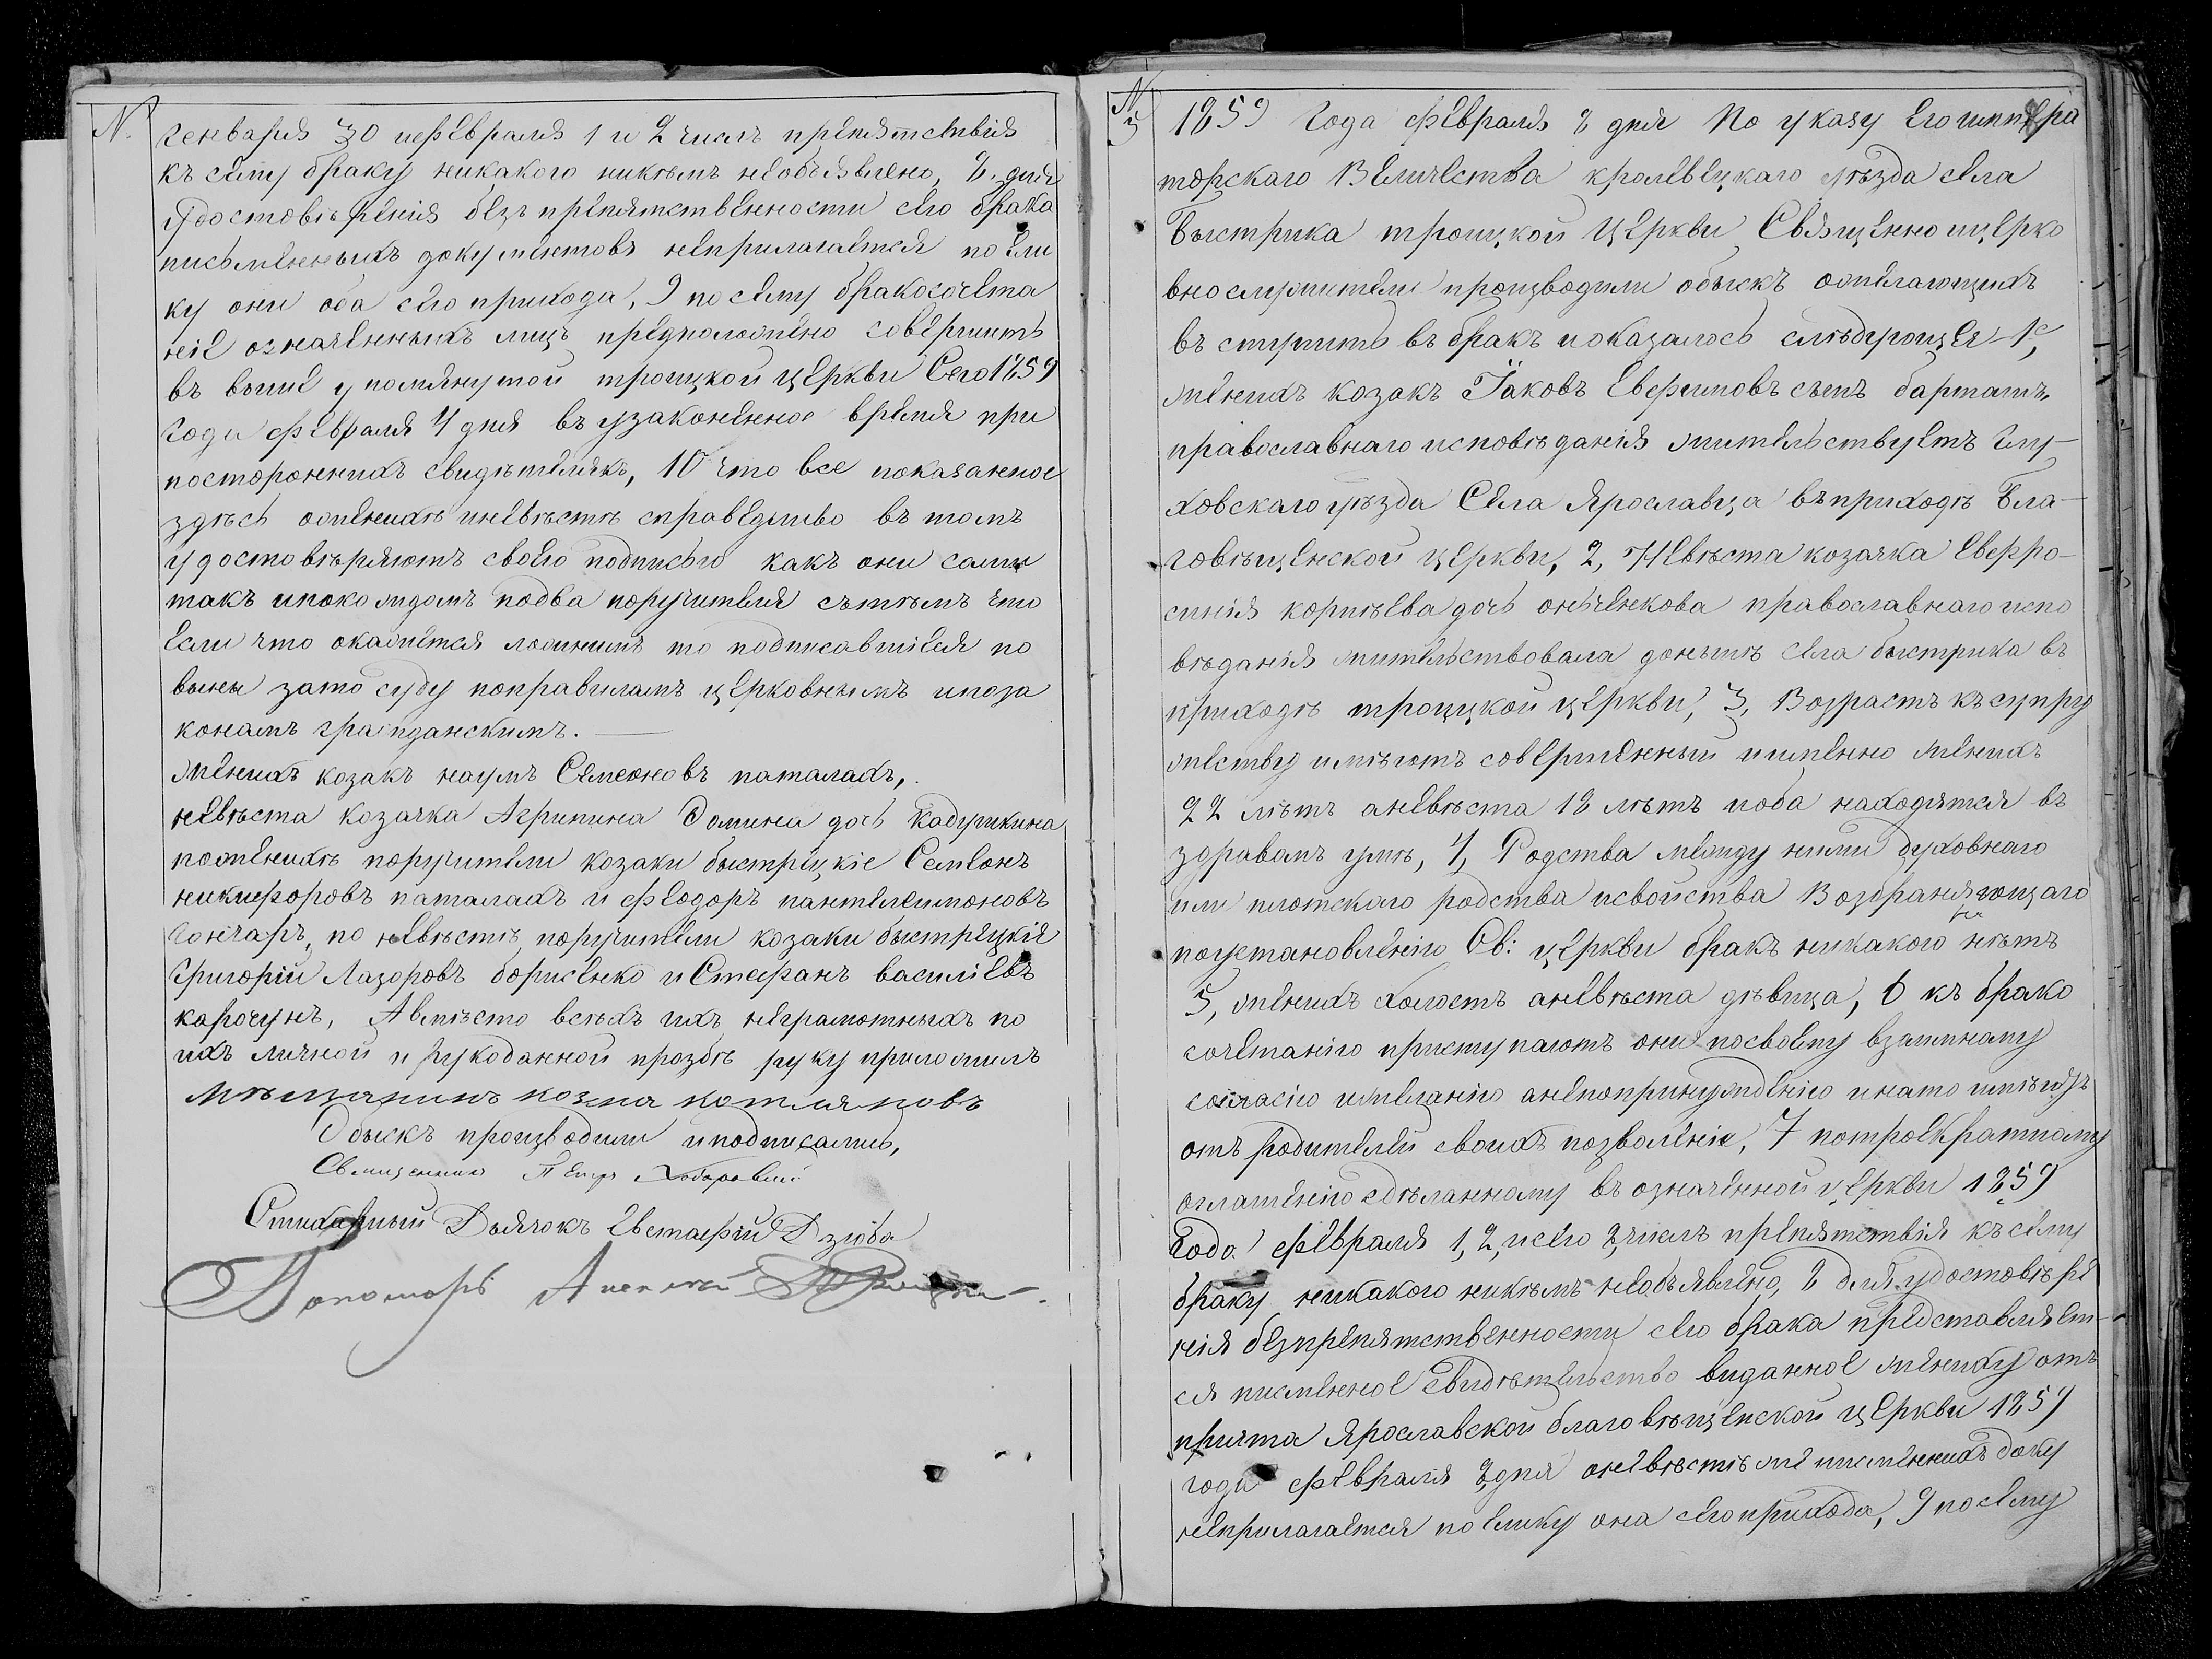 N.
генваря 30 ифевраля 1 и 2 числъ препятствія
къ сему браку никакого никѣмъ необъявлено, 8. для
удостовѣренія безъ препятственности сего брака
письменныхъ документовъ неприлагается поели
ку они оба сего прихода, 9 по сему бракосочета
ніе означенныхъ лицъ предположено совершить
въ выше упомянутой троицкой церкви Сего 1859
года февраля 4 дня въ узаконенное время при
постороннихъ свидѣтеляхъ, 10 что все показанное
здѣсь оженихѣ иневѣстѣ справедливо въ томъ
удостовѣряютъ своею подписью какъ они сами
такъ ипокаждомъ подва поручителя сътѣмъ что
если что окажется ложнымъ то подписавшіеся по
вины зато суду поправиламъ церковнымъ ипоза
конамъ гражданскимъ.
женихъ козакъ наумъ Семеновъ паталахъ,
невѣста козачка Агрипина Домина дочь Кадушкина
поженихѣ поручители козаки быстрицкіе Семіонъ
никифоровъ паталахъ и феодоръ пантелеимоновъ
Гончаръ, по невѣстѣ поручители козаки быстрецкіе
Григорій Лазоровъ борисенко и Стефанъ василіевъ
карочунъ, Авмѣсто всѣхъ ихъ неграмотныхъ по
ихъ личной и рукоданной прозбѣ руку приложилъ
мѣщанинъ козма котляновъ
Обыскъ производили иподписались,
Священникъ Петръ
Стихарный Дьячокъ Евстафій Дзюба
Пономарь Алексѣй
N 5
1859 Года февраля 8 дня По указу Его импера
торскаго Величества кролевецкаго уѣзда села
Быстрика троицкой Церкви Священно ицерко
вно служители производили обыскъ ожелающихъ
въ ступить въ бракъ иоказалось слѣдующее 1е,
женихъ козакъ Іаковъ Евфимовъ сынъ барташъ,
православнаго исповѣданія жительствуетъ Глу-
ховскаго уѣзда Села Ярославца въприходѣ Бла-
говѣщенской церкви, 2, Невѣста козачка Евфро-
синія корнѣева дочь онученкова православнаго испо
вѣданія жительствовала донынѣ села быстрика въ
приходѣ троицкой церкви, 3, Возрастъ къ супру
жеству имѣютъ совершенный именно женихъ
22 лѣтъ аневѣста 18 лѣтъ иоба находятся въ
здравомъ умѣ, 4, Родства между ними духовнаго
или плотскаго родства исвойства Возораняющаго
поустановленію Св: церкви бракъ никакого нѣтъ
5, женихъ холостъ аневѣста дѣвица, 6 къ брако
сочетанію приступаютъ они посвоему взаимному
согласію ижеланію анепопринужденію инато имѣютъ
отъ родителей своихъ позволеніе, 7 потроекратному
оглашенію сдѣланному въ означенной церкви 1859
Года февраля 1, 2, исего 8, числъ препятствія къ сему
браку никакого никѣмъ необъявлено, 8 для удостовѣре
нія безпрепятственности сего брака представляет-
ся писменное свидѣтельство виданное жениху отъ
причта Ярославской благовѣщенской церкви 1859
года февраля 8 дня оневѣстѣ же писменнихъ доку
неприлагается поелику она сего прихода, 9 посему